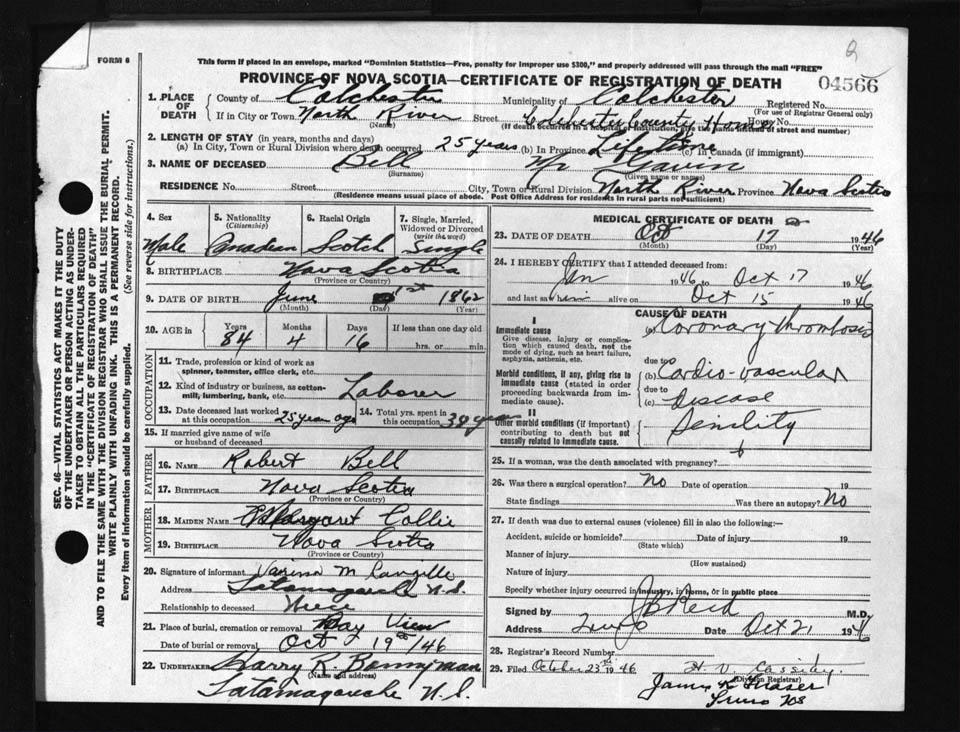 2
FORM 6
This form if placed in an envelope, marked "Dominion Statistics—Free, penalty for improper use $300," and properly addressed will pass through the mail "FREE"
PROVINCE OF NOVA SCOTIA—CERTIFICATE OF REGISTRATION OF DEATH
04566
1. PLACE OF DEATH
County of Colchester Municipality of Colchester Registered No.
(For use of Registrar General only)
If in City or Town North River Street Colchester County Home
(Name) (If death occurred in a hospital or institution, give the name instead of street and number)
2. LENGTH OF STAY (in years, months and days)
(a) In City, Town or Rural Division where death occurred 25 years (b) In Province Lifetime (c) In Canada (if immigrant)
3. NAME OF DECEASED Bell Mr Gavin
(Surname) (Given name or names)
RESIDENCE No. Street City, Town or Rural Division North River Province Nova Scotia
(Residence means usual place of abode. Post Office Address for residents in rural parts not sufficient)
4. Sex
Male
5. Nationality
(Citizenship)
Canadian
6. Racial Origin
Scotch
7. Single, Married, Widowed or Divorced
(write the word)
Single
8. BIRTHPLACE Nova Scotia
(Province or Country)
9. DATE OF BIRTH June 1st 1862
(Month) (Day) (Year)
10. AGE in
Years Months Days If less than one day old
84 4 16 hrs. or min.
OCCUPATION
11. Trade, profession or kind of work as
spinner, teamster, office clerk, etc.
12. Kind of industry or business, as cotton-
mill, lumbering, bank, etc. Laborer
13. Date deceased last worked
at this occupation 25 year ago
14. Total yrs. spent in
this occupation
15. If married give name of wife
or husband of deceased
FATHER
16. Name Robert Bell
17. Birthplace Nova Scotia
(Province or Country)
MOTHER
18. Maiden Name Margaret Collie
19. Birthplace Nova Scotia
(Province or Country)
20. Signature of informant M Langille
Address Tatamagouche N.S.
Relationship to deceased Niece
21. Place of burial, cremation or removal Bay View
Date of burial or removal Oct 19th/46
22. UNDERTAKER Harry R. Bonnyman
(Name and address)
Tatamagouche N.S.
MEDICAL CERTIFICATE OF DEATH
23. DATE OF DEATH Oct 17 1946
(Month) (Day) (Year)
24. I HEREBY CERTIFY that I attended deceased from:
Jan 1946 to Oct 17 1946
and last saw him alive on Oct 15 1946
CAUSE OF DEATH
I
Immediate cause
Give disease, injury or complica-
tion which caused death, not the
mode of dying, such as heart failure,
asphyxia, asthenia, etc.
(a) Coronary thrombosis
due to
Morbid conditions, if any, giving rise to
immediate cause (stated in order
proceeding backwards from im-
mediate cause).
(b) Cardio-vascular
due to
(c) Disease
II
Other morbid conditions (if important)
contributing to death but not
causally related to immediate cause.
Senility
25. If a woman, was the death associated with pregnancy?
26. Was there a surgical operation? No Date of operation 19
State findings Was there an autopsy? No
27. If death was due to external causes (violence) fill in also the following:
Accident, suicide or homicide? Date of injury 19
(State which)
Manner of injury
(How sustained)
Nature of injury
Specify whether injury occurred in industry, in home, or in public place
Signed by J B Reid M.D.
Address Truro Date Oct 21 1946
28. Registrar's Record Number
29. Filed October 23rd 1946 H. V. Cassidy
(Division Registrar)
James K Fraser
Truro NS
SEC. 46—VITAL STATISTICS ACT MAKES IT THE DUTY
OF THE UNDERTAKER OR PERSON ACTING AS UNDER-
TAKER TO OBTAIN ALL THE PARTICULARS REQUIRED
IN THE "CERTIFICATE OF REGISTRATION OF DEATH"
AND TO FILE THE SAME WITH THE DIVISION REGISTRAR WHO SHALL ISSUE THE BURIAL PERMIT.
WRITE PLAINLY WITH UNFADING INK. THIS IS A PERMANENT RECORD.
Every item of information should be carefully supplied. (See reverse side for instructions.)